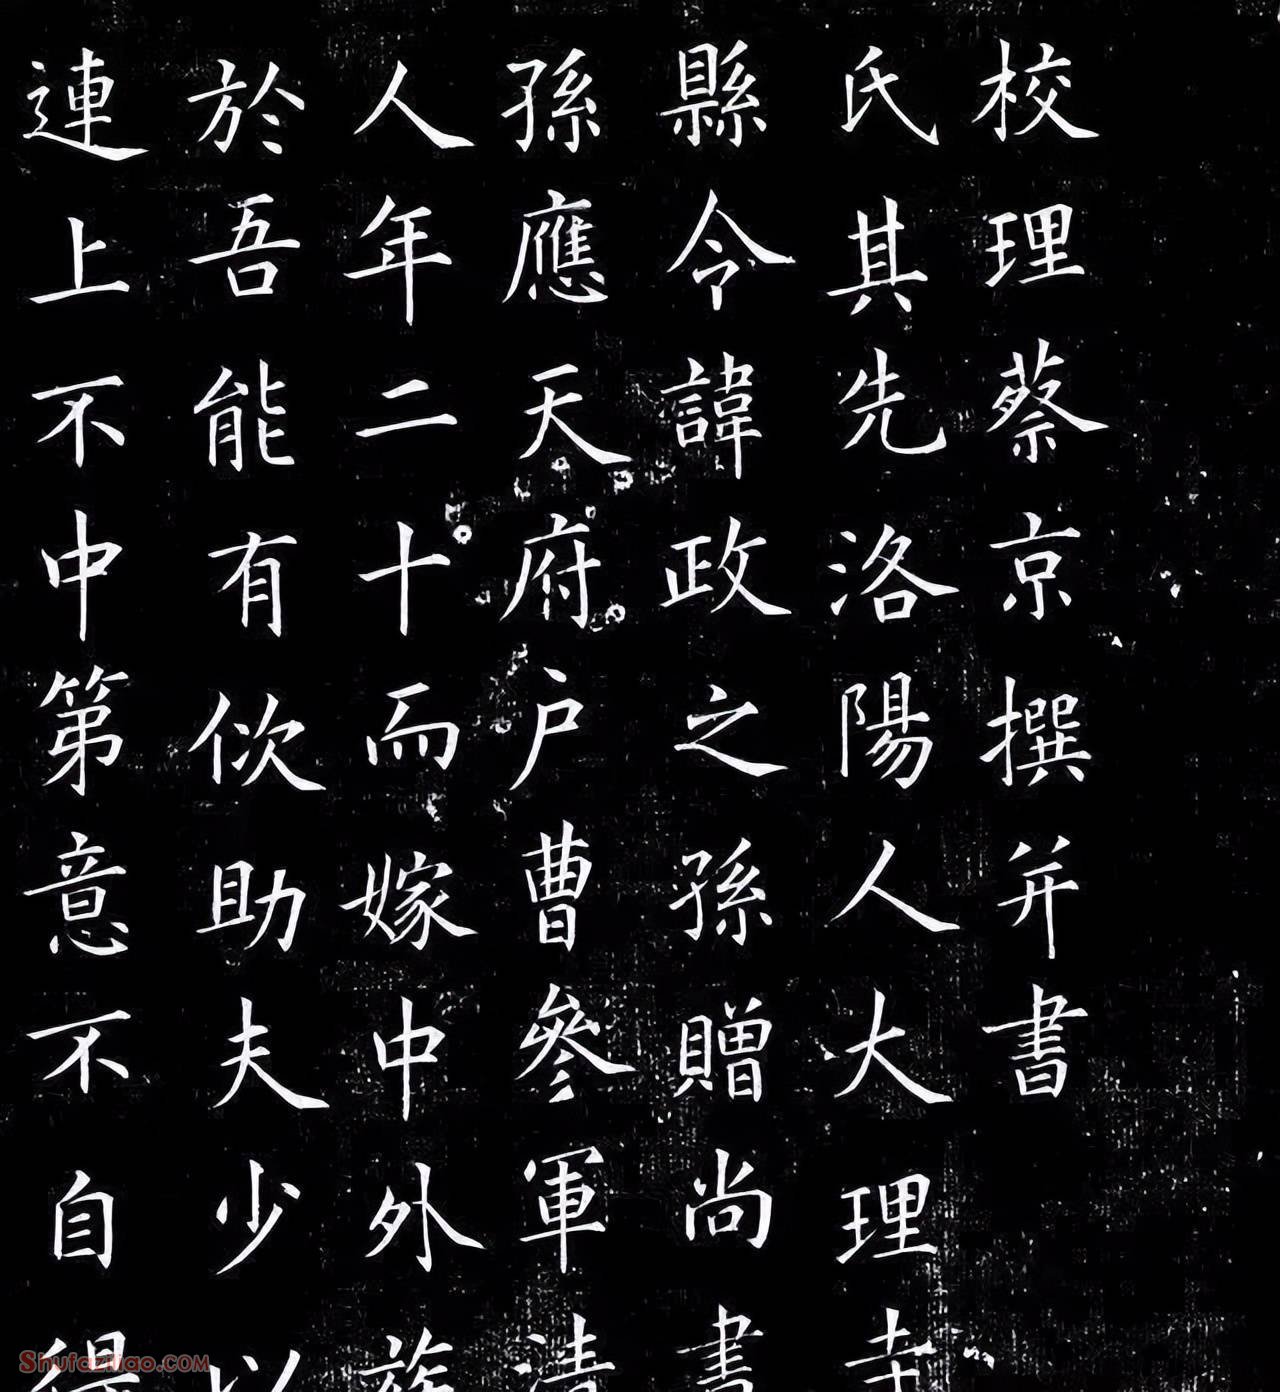 校理蔡京撰并書
氏其先洛陽人大理寺
縣令諱政之孫贈尚書
孫應天府戶曹參軍清
人年二十而嫁中外族
於吾能有佽助夫少以
連上不中第意不自得
Shufazihao.com